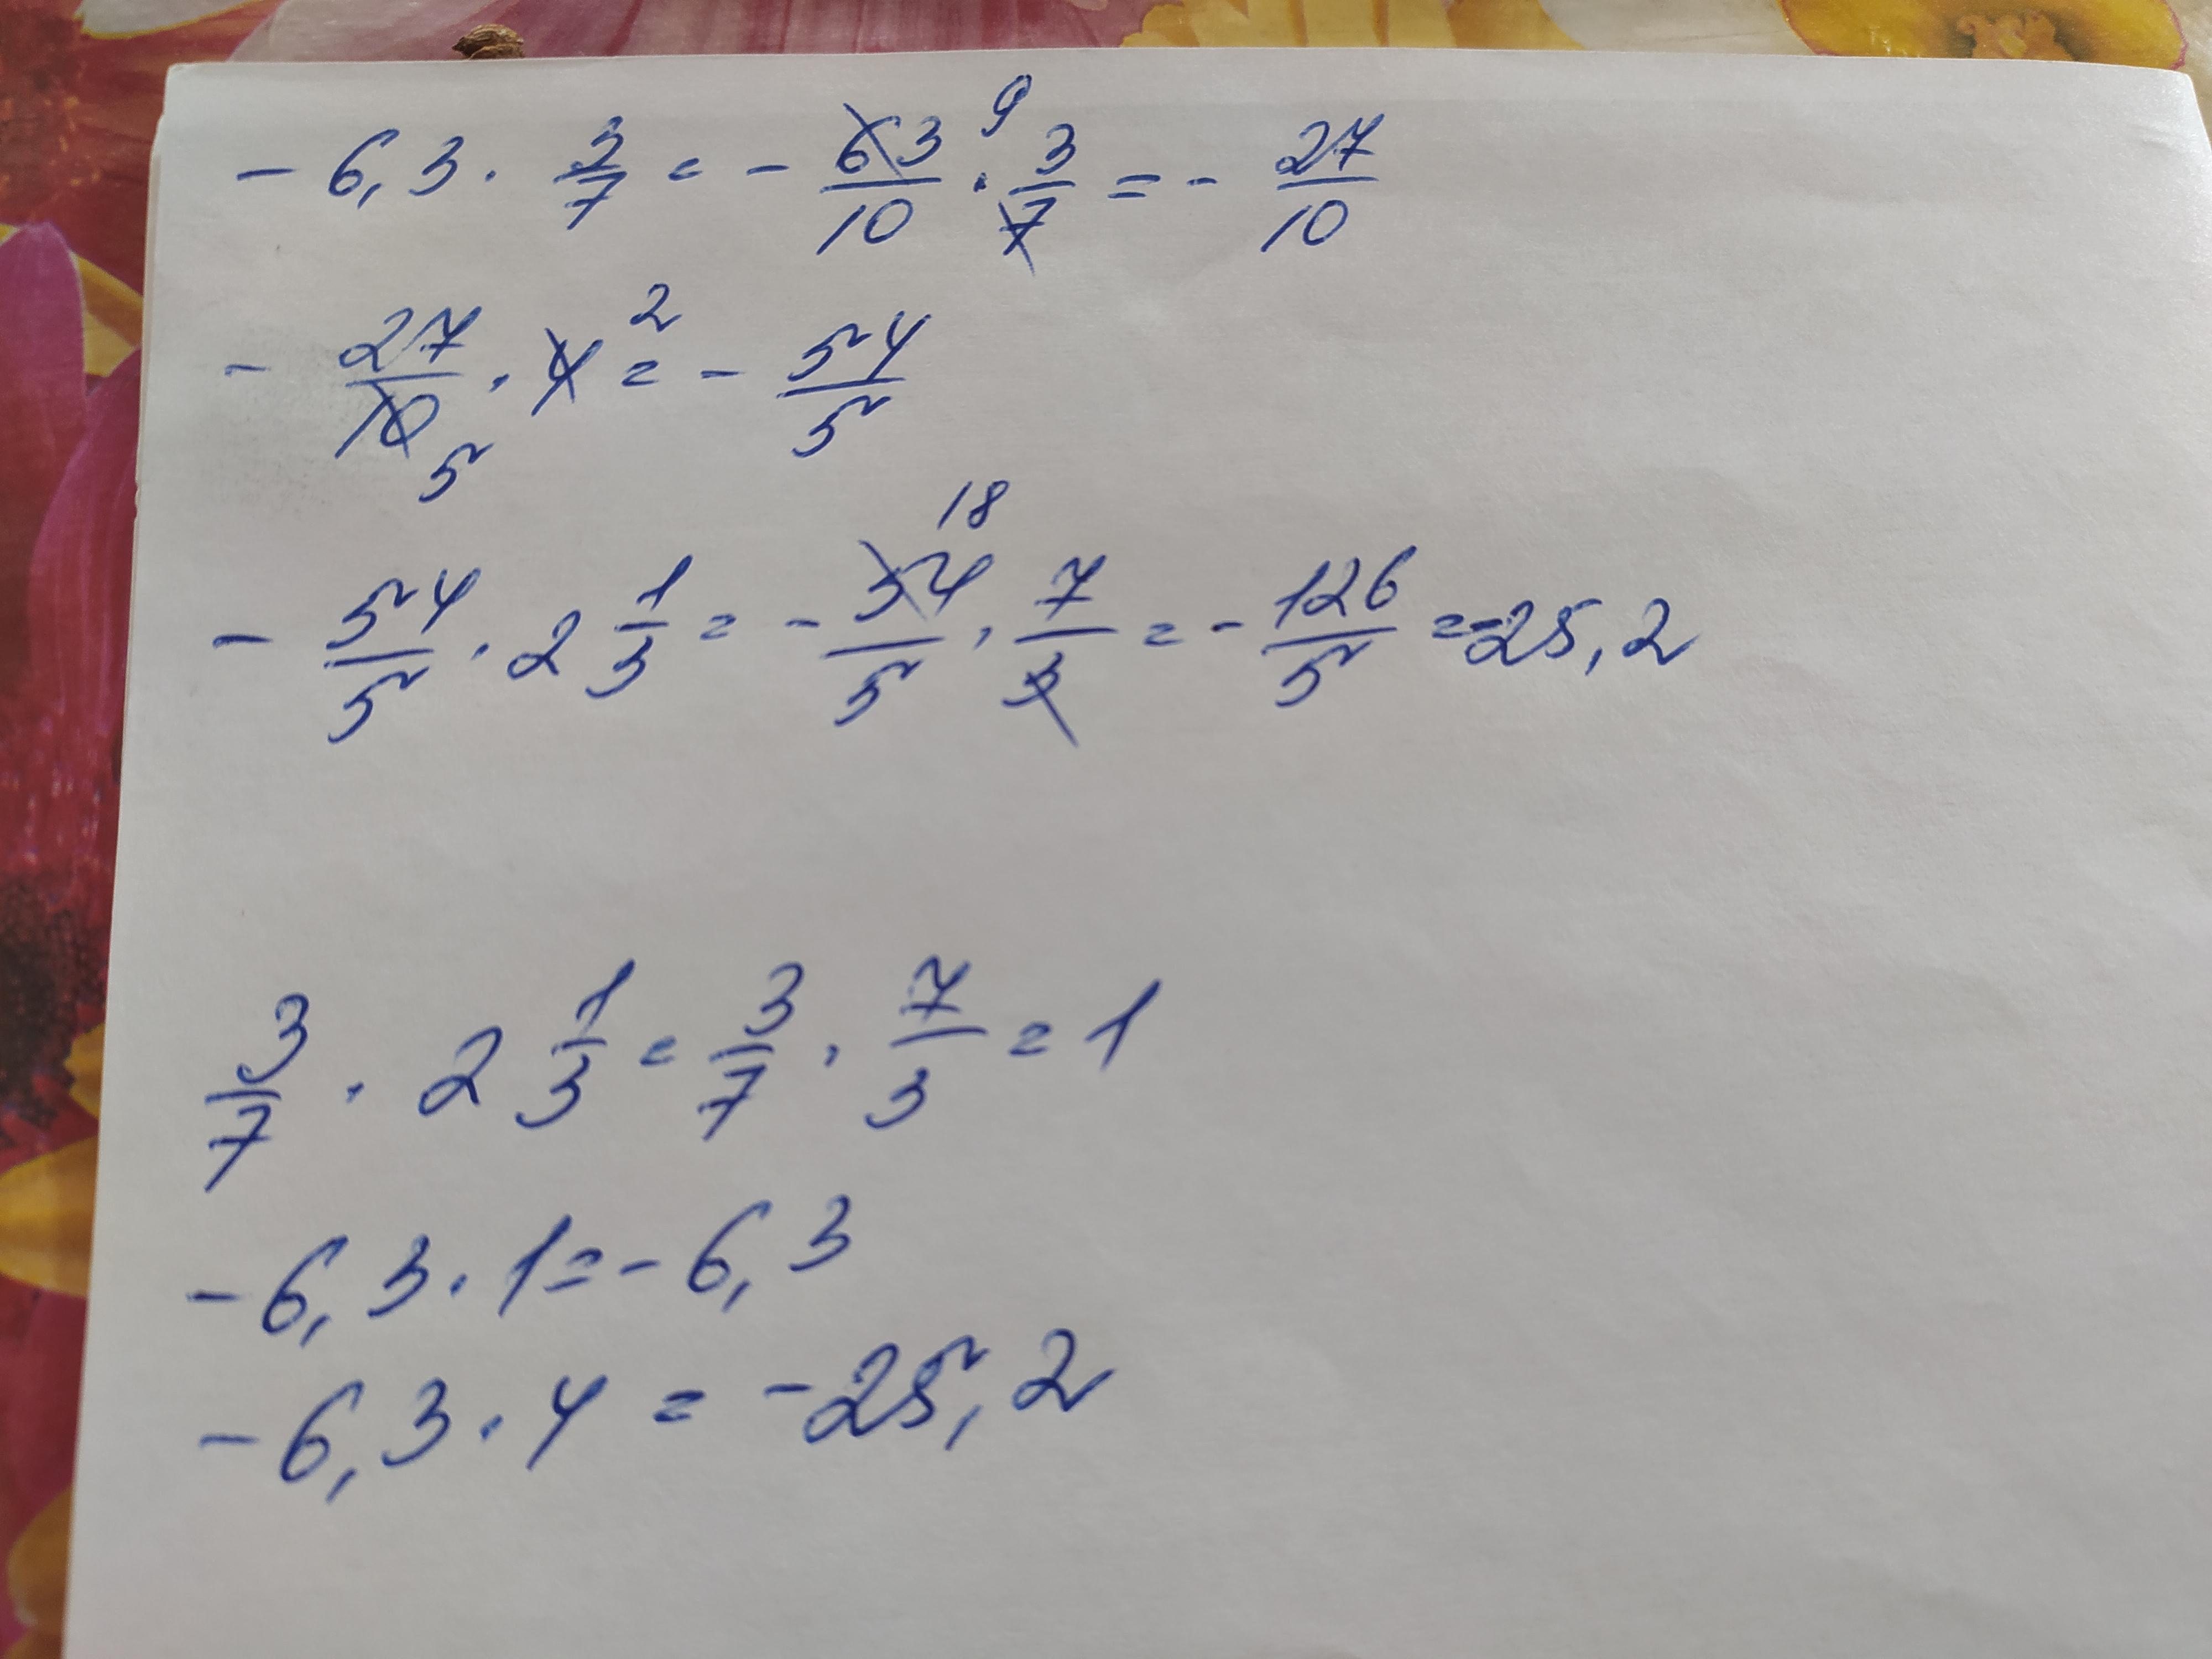 - 6,3 · 3/7 = - 63/10 · 9 3/7 = - 27/10
- 27/10 5 · 4 2 = - 54/5
- 54/5 · 2 1/3 = - 54/5 18 · 7/3 = - 126/5 = -25,2
3/7 · 2 1/3 = 3/7 · 7/3 = 1
-6,3 · 1 = - 6,3
-6,3 · 4 = -25,2